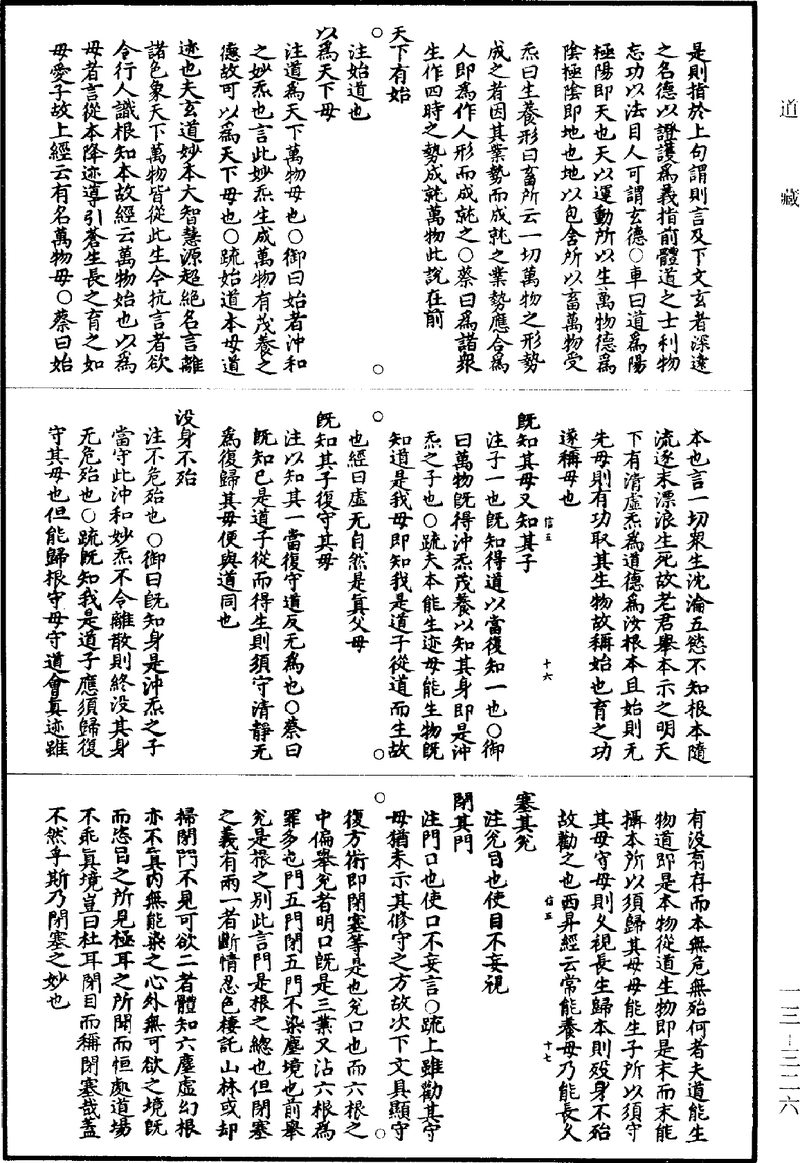 道藏
是則指於上句謂則言及下文玄者深遠
之名德以證護為義指前體道之士利物
忘功以法目人可謂玄德○車曰道為陽
極陽即天也天以運動所以生萬物德為
陰極陰即地也地以包含所以畜萬物受
炁曰生養形曰畜所云一切萬物之形勢
成之者因其業勢而成就之業勢應合為
人即為作人形而成就之○蔡曰為諸衆
生作四時之勢成就萬物此說在前
天下有始
注始道也
以為天下母
注道為天下萬物母也○御曰始者沖和
之妙炁也言此妙炁生成萬物有茂養之
德故可以為天下母也○疏始道本母道
迹也夫玄道妙本大智慧源超絕名言離
諸色象天下萬物皆從此生今抗言者欲
令行人識根知本故經云萬物始也以為
母者言從本降迹導引蒼生長之育之如
母愛子故上經云有名萬物母○蔡曰始
本也言一切衆生沈淪五慾不知根本隨
流逐末漂浪生死故老君舉本示之明天
下有清虛炁為道德為汝根本且始則无
先母則有功取其生物故稱始也育之功
遂稱母也
既知其母又知其子
信五
十六
注子一也既知得道以當復知一也○御
曰萬物既得沖炁茂養以知其身即是沖
炁之子也○疏夫本能生迹母能生物既
知道是我母即知我是道子從道而生故
也經曰虛无自然是真父母
既知其子復守其母
注以知其一當復守道反无為也○蔡曰
既知已是道子從而得生則須守清靜无
為復歸其母便與道同也
没身不殆
注不危殆也○御曰既知身是沖炁之子
當守此沖和妙炁不令離散則終没其身
无危殆也○疏既知我是道子應須歸復
守其母也但能歸根守母守道會真迹雖
有没有存而本無危無殆何者夫道能生
物道即是本物從道生物即是末而末能
攝本所以須歸其母母能生子所以須守
其母守母則久視長生歸本則殁身不殆
故勸之也西昇經云常能養母乃能長久
信五
十七
塞其兊
注兊目也使目不妄視
閉其門
注門口也使口不妄言○疏上雖勸其守
母猶未示其修守之方故次下文具顯守
復方術即閉塞等是也兊口也而六根之
中偏舉兊者明口既是三業又沾六根為
罪多也門五門閉五門不染塵境也前舉
兊是根之別此言門是根之總也但閉塞
之義有兩一者斷情忍色棲託山林或却
掃閉門不見可欲二者體知六塵虛幻根
亦不真内無能染之心外無可欲之境既
而恣目之所見極耳之所聞而恒處道場
不乖真境豈曰杜耳閉目而稱閉塞哉蓋
不然乎斯乃閉塞之妙也
一三-三二六